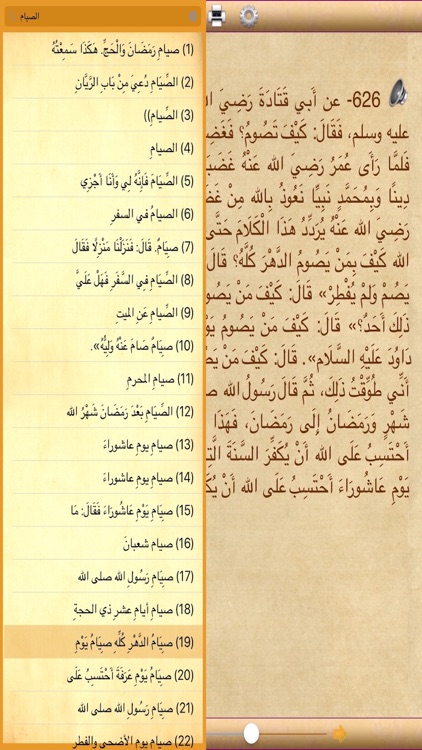 الصيام
(1) صيامِ رَمَضَانَ وَالْحَجِّ. هَكَذَا سَمِعْتُهُ
(2) الصِّيَامِ دُعِيَ مِنْ بَابِ الرَّيَّانِ
(3) الصِّيامِ))
(4) الصيامِ
(5) الصِّيَامَ فَإِنَّهُ لِي وَأَنَا أَجْزِي
(6) الصيامُ في السفرِ
(7) صِيَامٌ، قَالَ: فَنَزَلْنَا مَنْزِلًا فَقَالَ
(8) الصِّيَامِ فِي السَّفَرِ فَهَلْ عَلَيَّ
(9) الصِّيامِ عَنِ الميتِ
(10) صِيَامٌ صَامَ عَنْهُ وَلِيُّهُ».
(11) صيامِ المحرمِ
(12) الصِّيَامِ بَعْدَ رَمَضَانَ شَهْرُ الله
(13) صيامِ يومِ عاشوراءَ
(14) صيامِ يومِ عاشوراءَ
(15) صِيَامِ يَوْمِ عَاشُورَاءَ فَقَالَ: مَا
(16) صيامِ شعبانَ
(17) صِيَامِ رَسُولِ الله صلى الله
(18) صيامِ أيامِ عشرِ ذي الحجةِ
(19) صِيَامُ الدَّهْرِ كُلِّهِ صِيَامُ يَوْمِ
(20) صِيَامُ يَوْمِ عَرَفَةَ أَحْتَسِبُ عَلَى
(21) صِيَامِ رَسُولِ الله صلى الله
(22) صيامِ يومِ الأضحى والفطرِ
626- عن أَبي قَتَادَةَ رَضِيَ
عليه وسلم، فَقَالَ: كَيْفَ تَصُومُ؟
فَلَمَّا رَأَى عُمَرُ رَضِيَ الله عَنْهُ
دِينًا وَبِمُحَمَّدٍ نَبِيًّا نَعُوذُ بِالله مِنْ
رَضِيَ الله عَنْهُ يُرَدِّدُ هَذَا الْكَلَامَ حَتَّى
الله كَيْفَ بِمَنْ يَصُومُ الدَّهْرَ كُلَّهُ؟ قَالَ
يَصُمْ وَلَمْ يُفْطِرْ» قَالَ: كَيْفَ مَنْ
ذَلِكَ أَحَدٌ؟» قَالَ: كَيْفَ مَنْ يَصُومُ
دَاوُدَ عَلَيْهِ السَّلَام». قَالَ: كَيْفَ مَنْ
أَنِّي طُوِّقْتُ ذَلِكَ، ثُمَّ قَالَ رَسُولُ الله
شَهْرٍ وَرَمَضَانُ إِلَى رَمَضَانَ، فَهَذَا
أَحْتَسِبُ عَلَى الله أَنْ يُكَفِّرَ السَّنَةَ
يَوْمِ عَاشُورَاءَ أَحْتَسِبُ عَلَى الله أَنْ